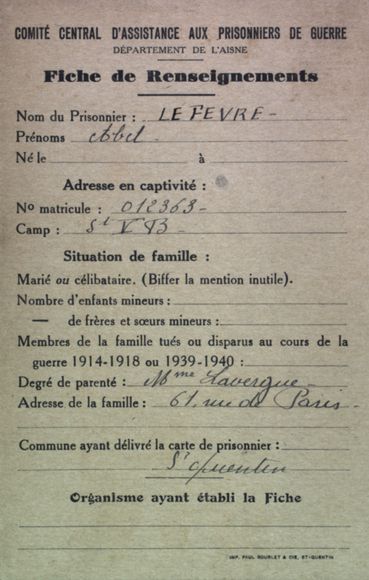 COMITÉ CENTRAL D'ASSISTANCE AUX PRISONNIERS DE GUERRE
DÉPARTEMENT DE L'AISNE
Fiche de Renseignements
Nom du Prisonnier : LEFEVRE -
Prénoms Abel
Né le à
Adresse en captivité :
No matricule : 012363 -
Camp : St V B -
Situation de famille :
Marié ou célibataire. (Biffer la mention inutile).
Nombre d'enfants mineurs :
— de frères et sœurs mineurs :
Membres de la famille tués ou disparus au cours de la
guerre 1914-1918 ou 1939-1940 :
Degré de parenté : Mme Lavergue -
Adresse de la famille : 61, rue de Paris -
Commune ayant délivré la carte de prisonnier :
St Quentin
Organisme ayant établi la Fiche
IMP. PAUL BOURLET & CIE, ST-QUENTIN